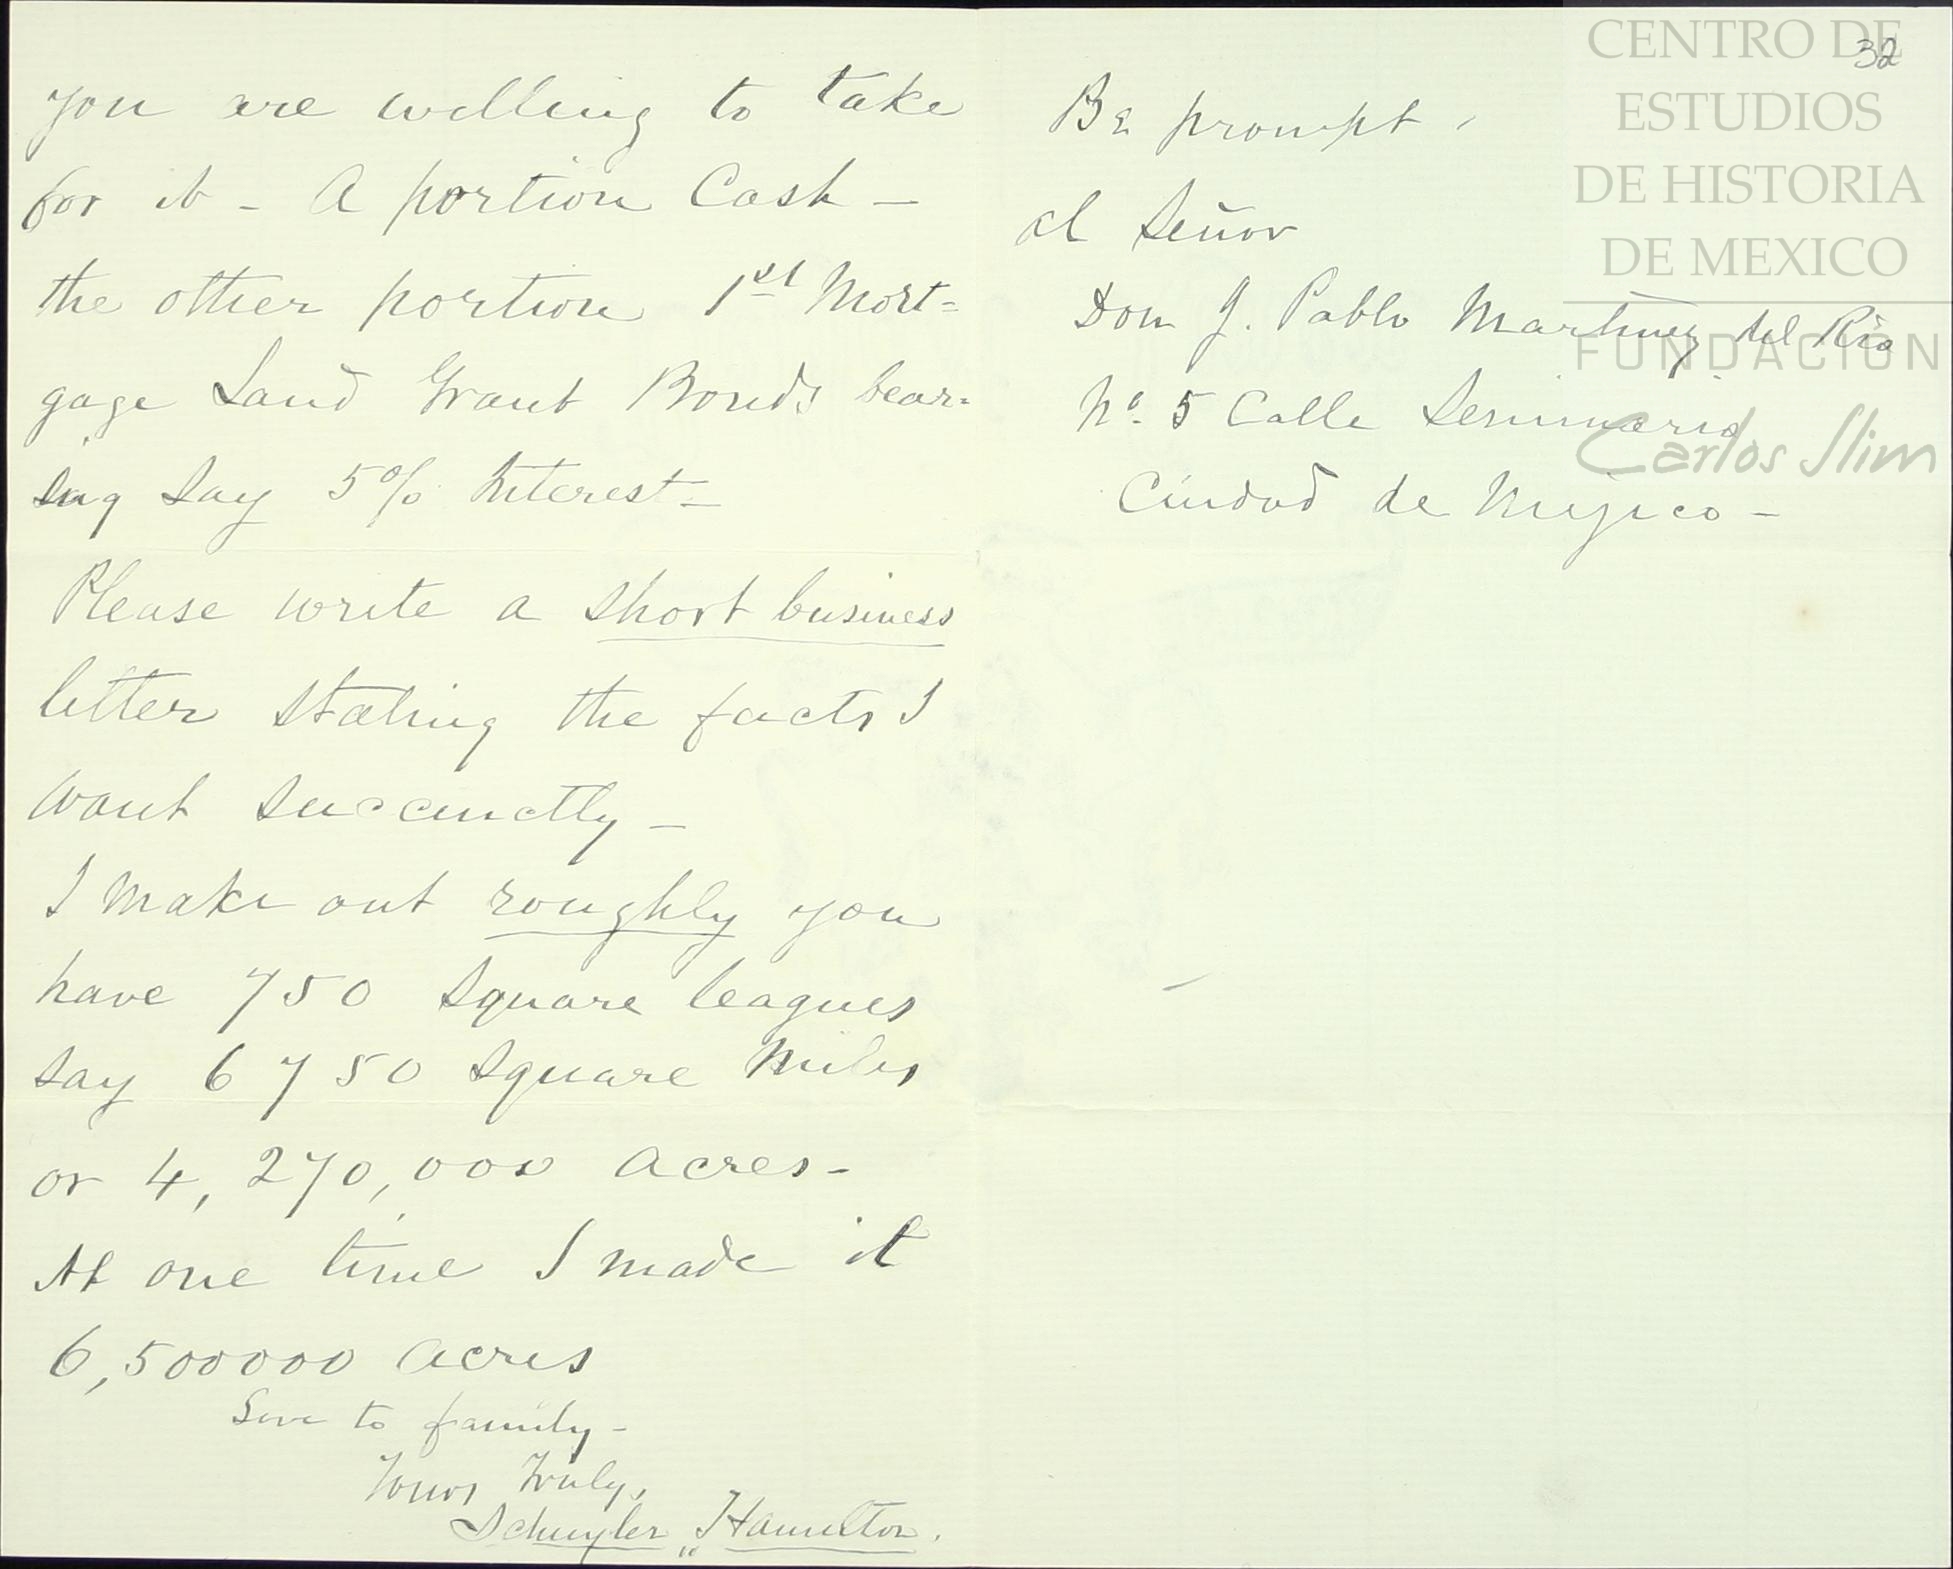 you are willing to take
for it - A portion Cash -
the other portion 1st Mort=
gage Land Grant Bonds bear=
ing say 5% Interest -
Please write a short business
letter stating the facts I
want succinctly -
I make out roughly you
have 750 square leagues
say 6750 square miles
or 4,270,000 acres -
At one time I made it
6,500000 acres
Love to family -
Yours truly,
Schuyler Hamilton.
32
Be prompt.
al Señor
Don J. Pablo Martinez del Rio
No. 5 Calle Seminario
Ciudad de Mejico -
CENTRO DE
ESTUDIOS
DE HISTORIA
DE MEXICO
FUNDACIÓN
Carlos Slim